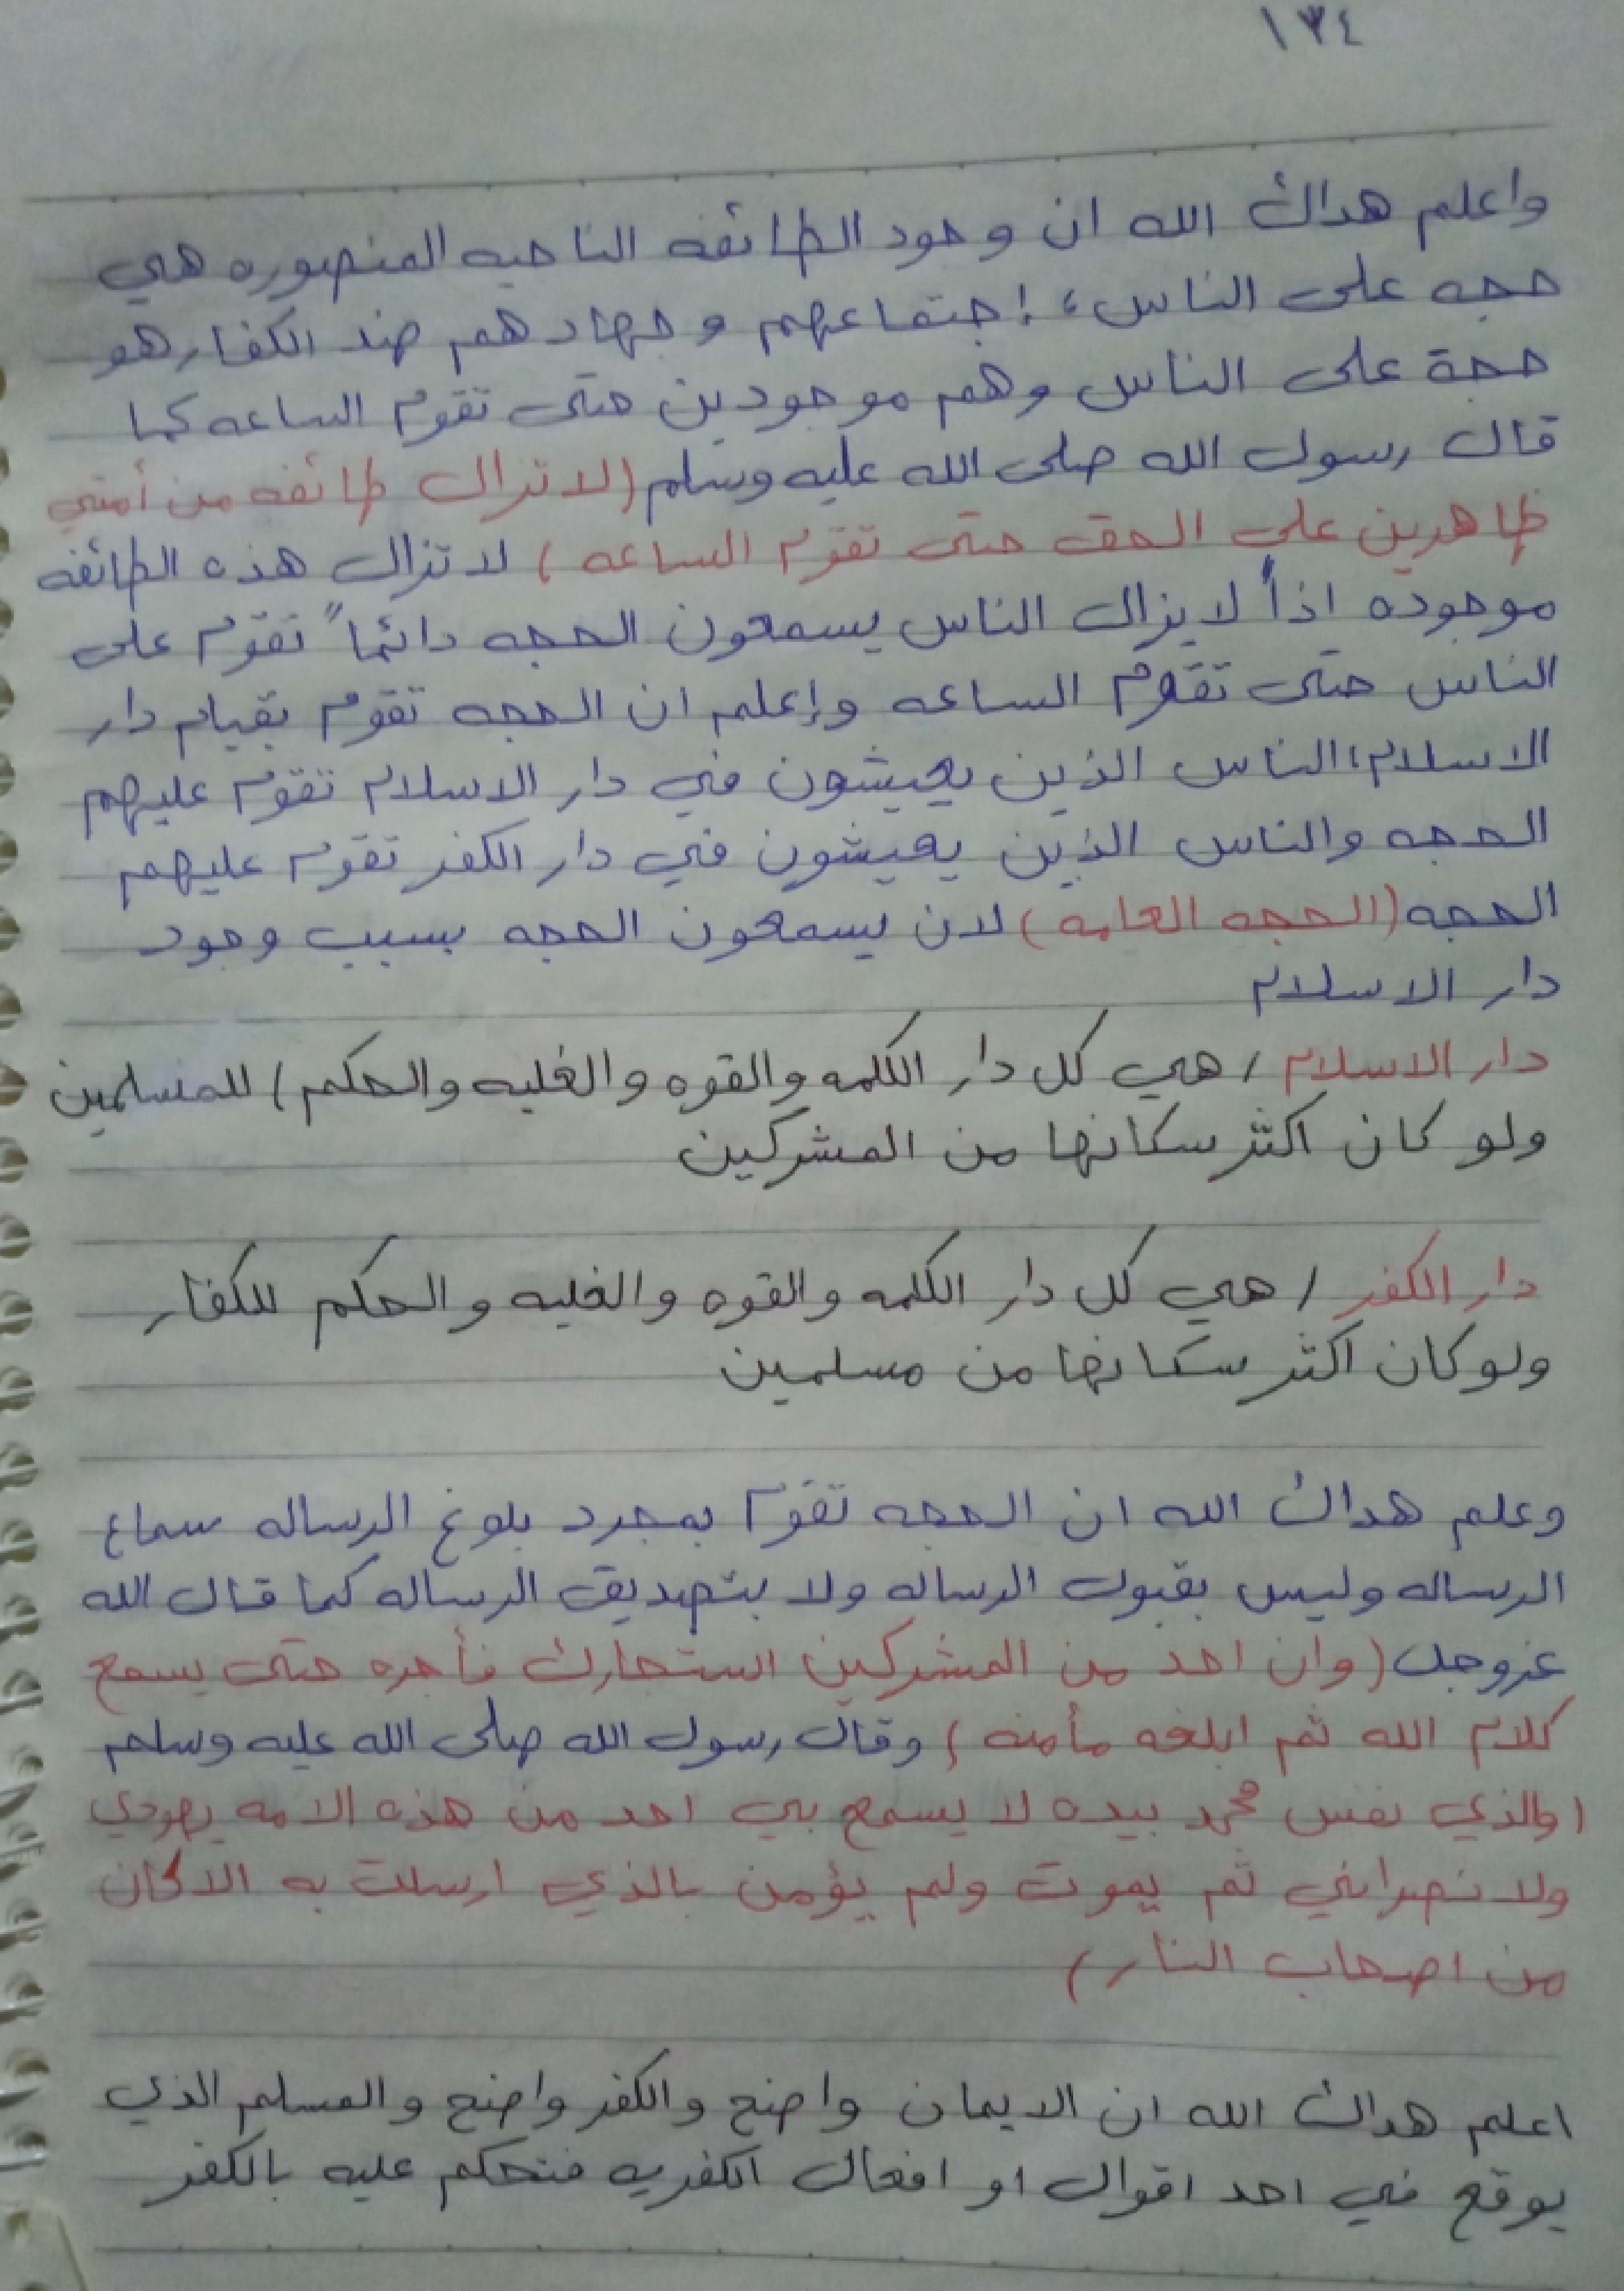 ١٣٤
واعلم هداك الله ان وجود الطائفه الناجيه المنصوره هي
حجه على الناس، إجتماعهم وجهادهم ضد الكفار هو
حجة على الناس وهم موجودين حتى تقوم الساعه كما
قال رسول الله صلى الله عليه وسلم (لا تزال طائفه من أمتي
ظاهرين على الحق حتى تقوم الساعه) لا تزال هذه الطائفه
موجوده اذاً لا يزال الناس يسمعون الحجه دائماً تقوم على
الناس حتى تقوم الساعه وإعلم ان الحجه تقوم بقيام دار
الاسلام، الناس الذين يعيشون في دار الاسلام تقوم عليهم
الحجه والناس الذين يعيشون في دار الكفر تقوم عليهم
الحجه (الحجه العامه) لان يسمعون الحجه بسبب وجود
دار الاسلام
دار الاسلام / هي كل دار الكلمه والقوه والغلبه والحكم) للمسلمين
ولو كان اكثر سكانها من المشركين
دار الكفر / هي كل دار الكلمه والقوه والغلبه والحكم للكفار
ولو كان اكثر سكانها من مسلمين
وعلم هداك الله ان الحجه تقوم بمجرد بلوغ الرساله سماع
الرساله وليس بقبول الرساله ولا بتصديق الرساله كما قال الله
عزوجل (وان احد من المشركين استجارك فأجره حتى يسمع
كلام الله ثم ابلغه مأمنه) وقال رسول الله صلى الله عليه وسلم
(والذي نفس محمد بيده لا يسمع بي احد من هذه الامه يهودي
ولا نصراني ثم يموت ولم يؤمن بالذي ارسلت به الا كان
من اصحاب النار)
اعلم هداك الله ان الايمان واضح والكفر واضح والمسلم الذي
يوقع في احد اقوال او افعال الكفريه فتحكم عليه بالكفر